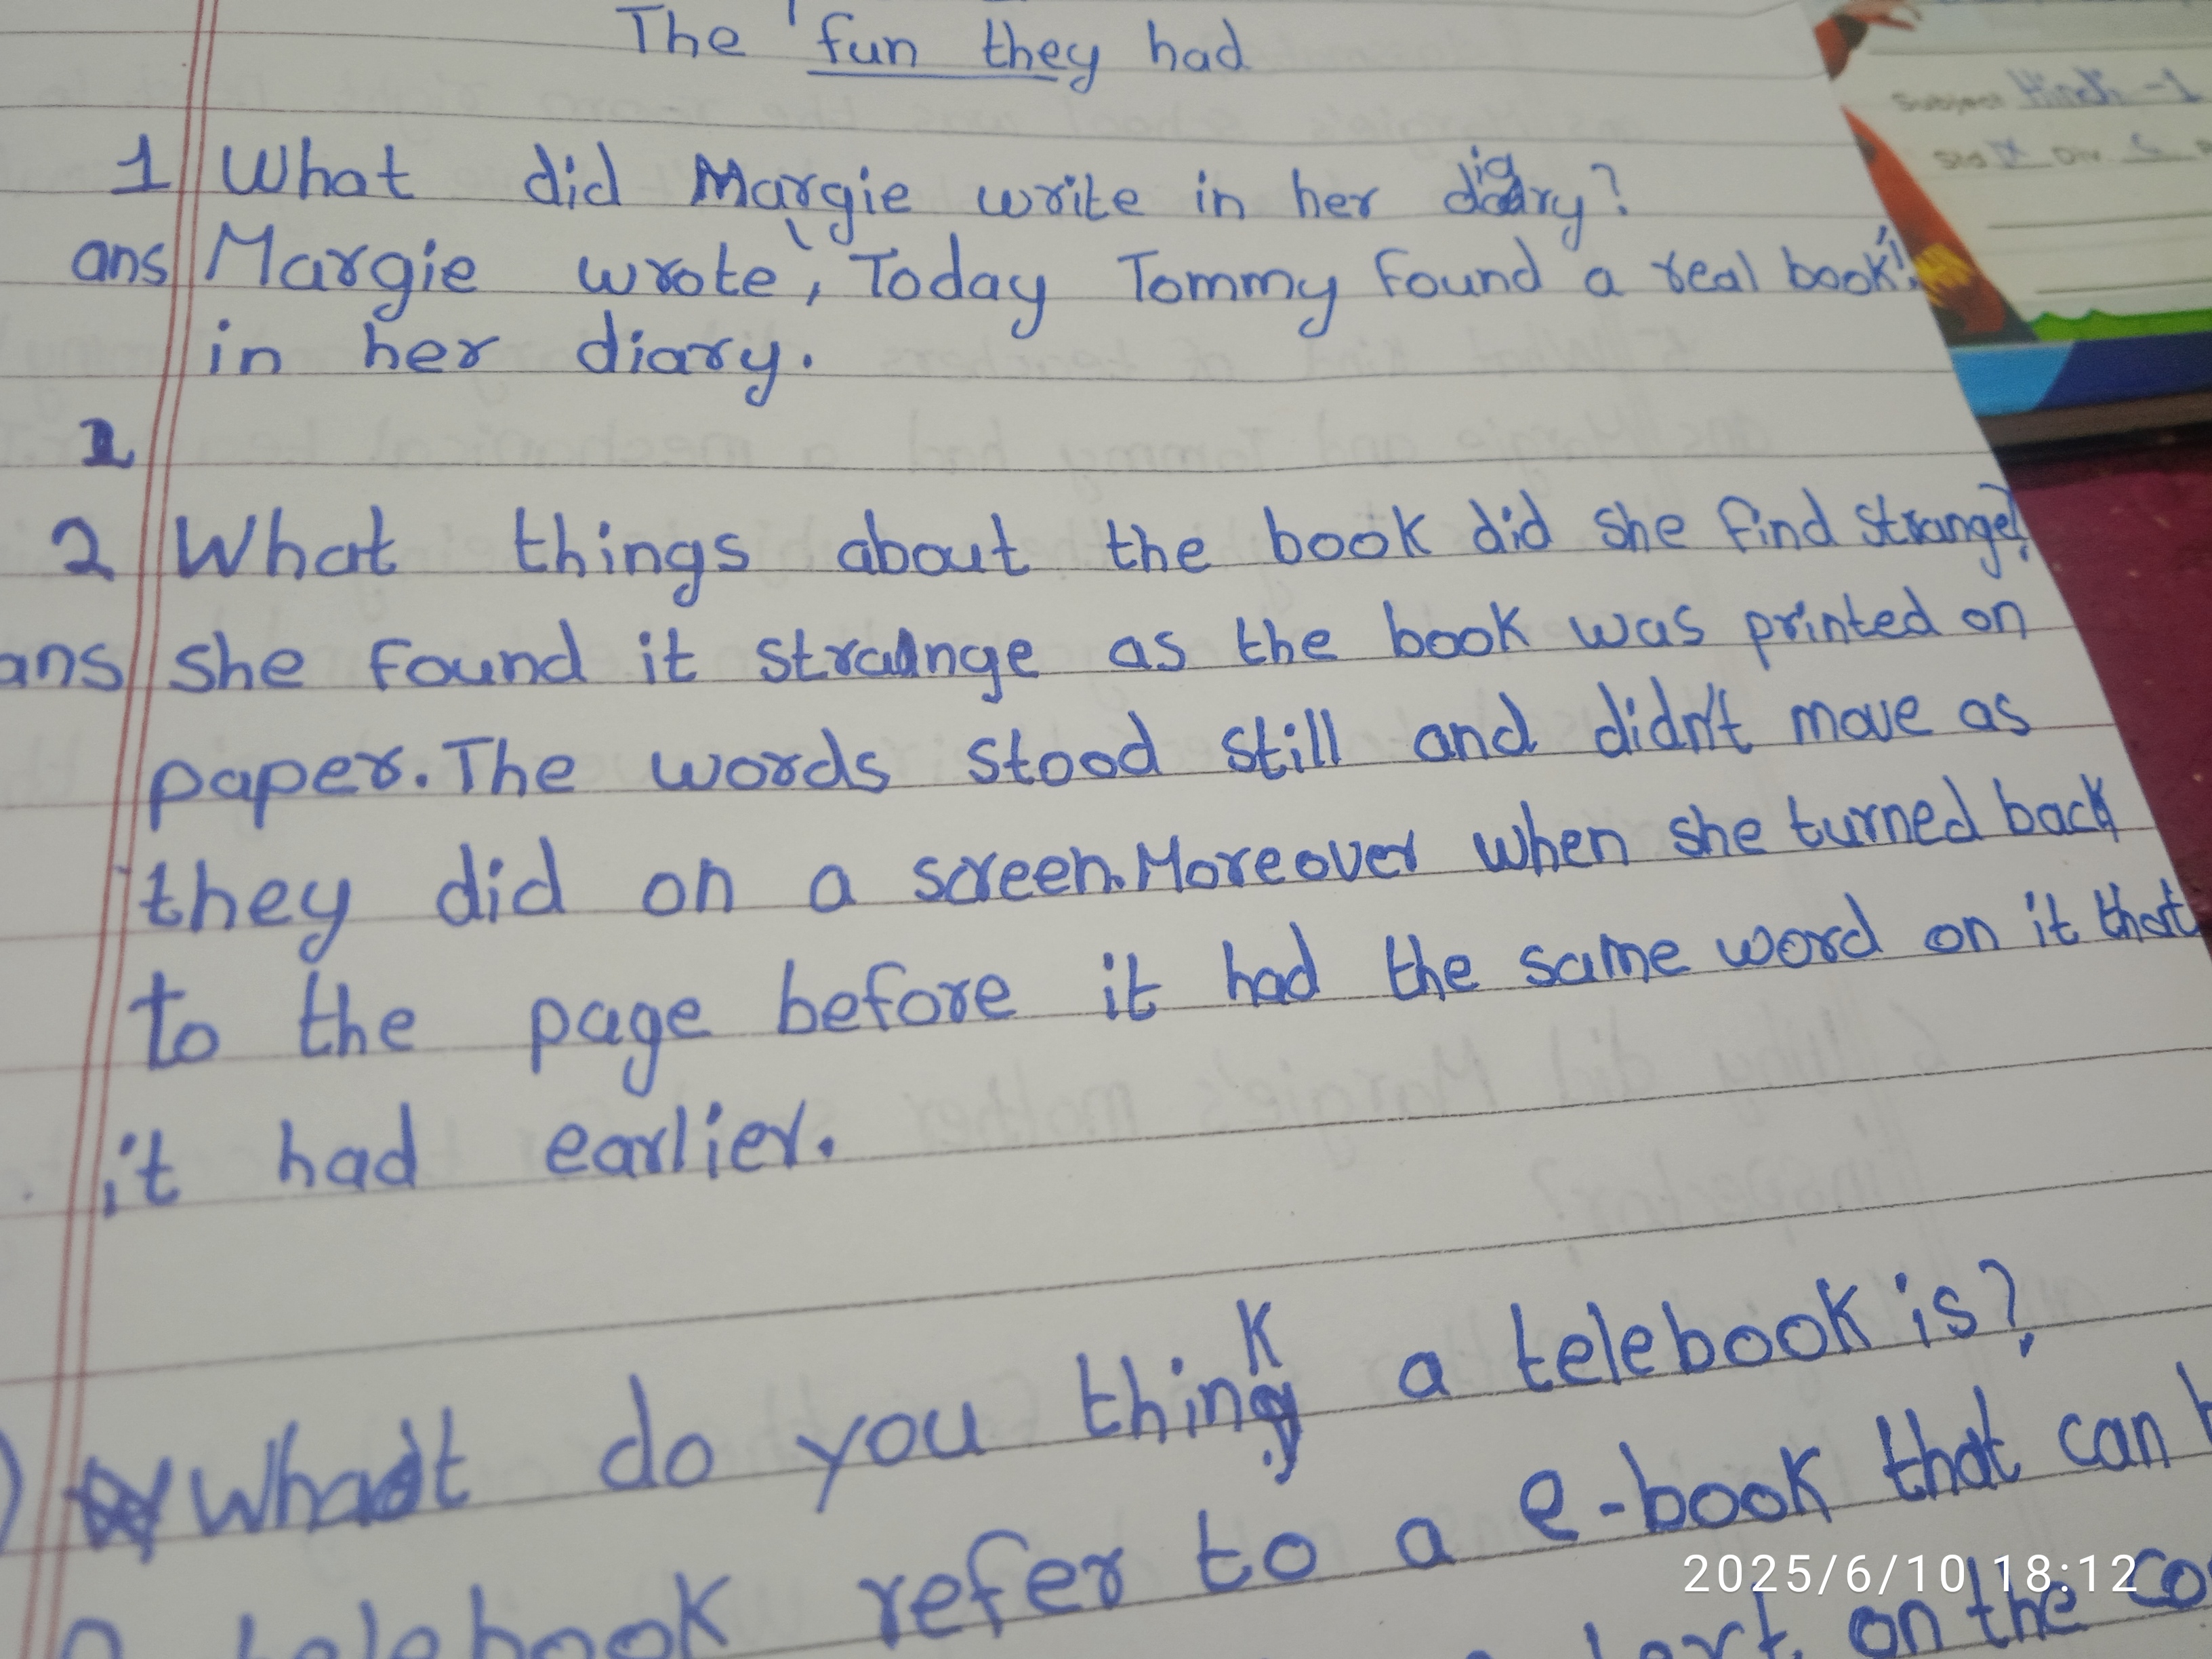 The fun they had
Subject Hindi-1
1 What did Margie write in her diary?
ans Margie wrote, 'Today Tommy found a real book!'
in her diary.
1
2 What things about the book did she find strange?
ans she found it strange as the book was printed on
paper. The words stood still and didn't move as
they did on a screen. Moreover when she turned back
to the page before it had the same word on it that
it had earlier.
What do you think a telebook is?
telebook refer to a e-book that can
on the
2025/6/10 18:12